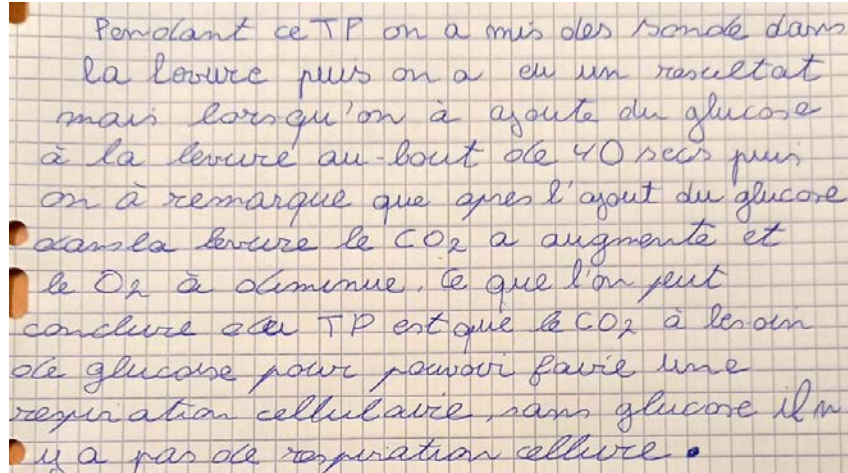 Pendant ce TP on a mis des sonde dans
la levure puis on a eu un resultat
mais lorsqu'on à ajoute du glucose
à la levure au-bout de 40 secs puis
on à remarque que apres l'ajout du glucose
dans la levure le CO2 a augmente et
le O2 à diminue. Ce que l'on peut
conclure du TP est que le CO2 à besoin
de glucose pour pouvoir favie une
respiration cellulaire, sans glucose il n
y a pas de respiration cellure.